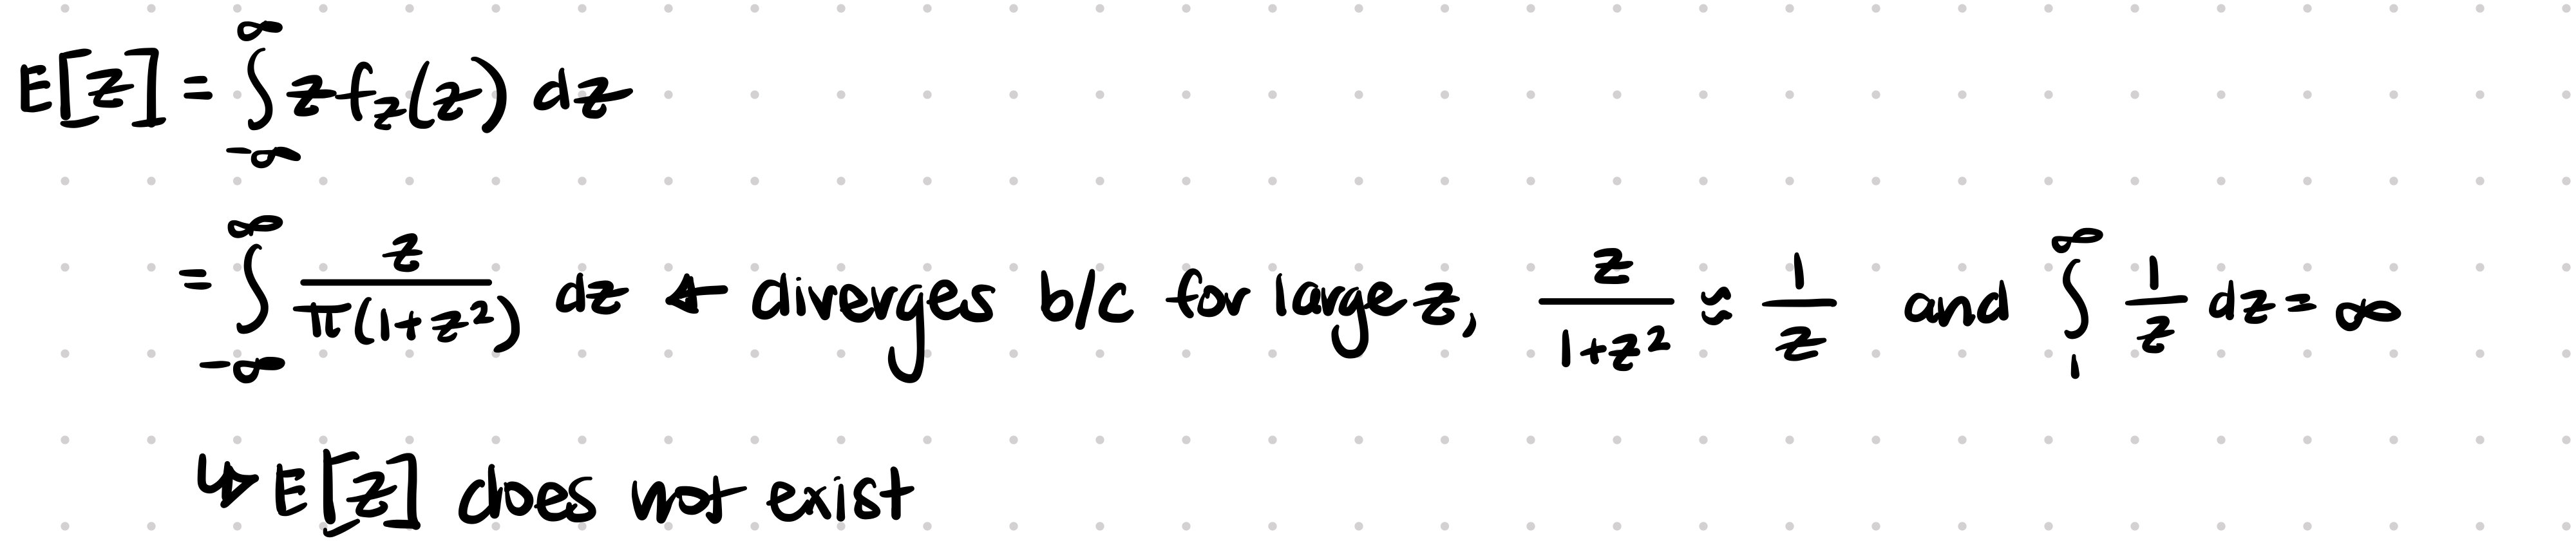 E[Z] = ∫_{-∞}^{∞} z f_Z(z) dz
= ∫_{-∞}^{∞} \frac{z}{π(1+z²)} dz ← diverges b/c for large z, \frac{z}{1+z²} ≈ \frac{1}{z} and ∫_{1}^{∞} \frac{1}{z} dz = ∞
↳ E[Z] does not exist